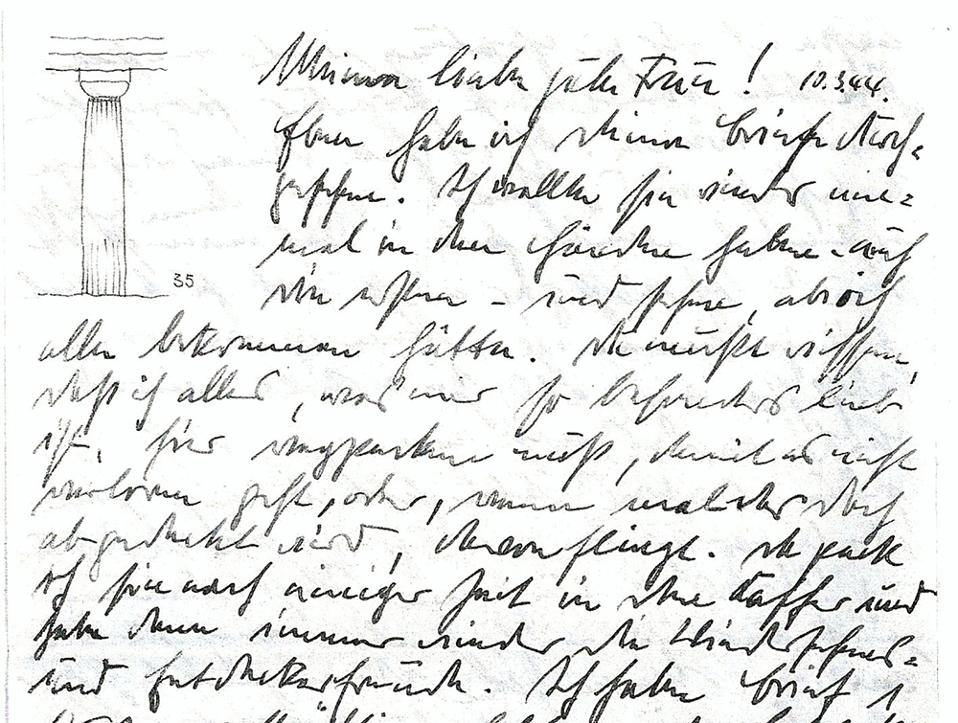 Meine liebe gute Frau! 10.3.44.
Eben habe ich Deine Briefe durch=
gesehen. Ich wollte sie wieder ein=
mal in den Händen haben – auch
die – und sehen, ob ich
35
alle bekommen hätte. Du mußt wissen,
daß ich alles, was mir so besonders lieb
ist, hier wegpacken muß, damit es nicht
verloren geht, oder, wenn mal das Dach
abgedeckt wird, davonfliegt. Da packe
ich sie nach einiger Zeit in den Koffer und
habe dann immer wieder die Wiedersehens=
und Entdeckerfreude. Ich habe Brief 1